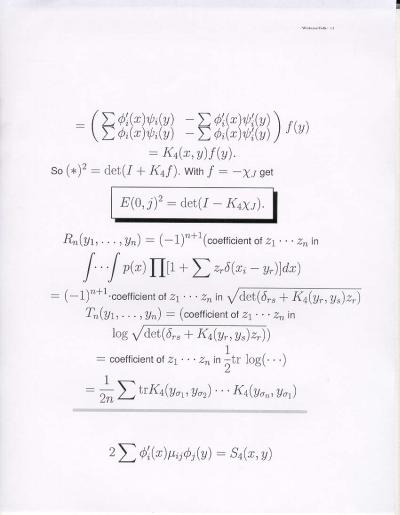 = ( ∑ φ′ᵢ(x)ψᵢ(y)  −∑ φ′ᵢ(x)ψ′ᵢ(y)
∑ φᵢ(x)ψᵢ(y)  −∑ φᵢ(x)ψ′ᵢ(y) ) f(y)
= K₄(x, y)f(y).
So (∗)² = det(I + K₄f). With f = −χ_J get
E(0, j)² = det(I − K₄χ_J).
Rₙ(y₁, . . . , yₙ) = (−1)ⁿ⁺¹(coefficient of z₁ · · · zₙ in
∫···∫ p(x) ∏[1 + ∑ zᵣδ(xᵢ − yᵣ)]dx)
= (−1)ⁿ⁺¹·coefficient of z₁ · · · zₙ in √det(δᵣₛ + K₄(yᵣ, yₛ)zᵣ)
Tₙ(y₁, . . . , yₙ) = (coefficient of z₁ · · · zₙ in
log √det(δᵣₛ + K₄(yᵣ, yₛ)zᵣ))
= coefficient of z₁ · · · zₙ in 1/2 tr log(· · ·)
= 1/2n ∑ trK₄(y_σ₁, y_σ₂) · · · K₄(y_σₙ, y_σ₁)
2 ∑ φ′ᵢ(x)μᵢⱼφⱼ(y) = S₄(x, y)